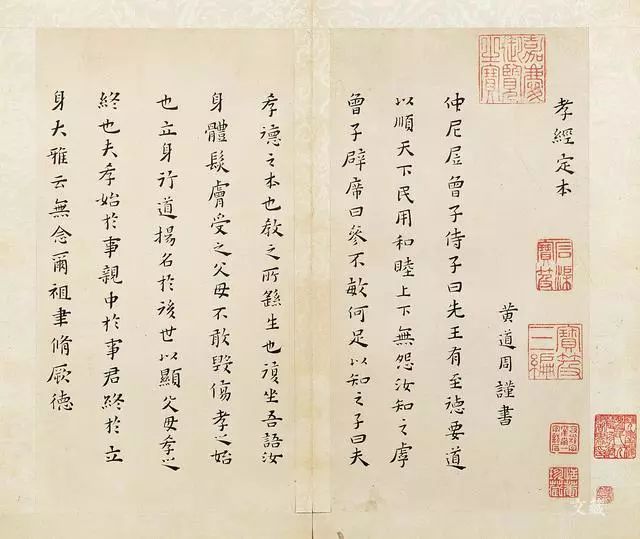 嘉慶御覽之寶
孝經定本
石渠寶笈
寶笈三編
黄道周謹書
仲尼凥曾子侍子曰先王有至德要道
以順天下民用和睦上下無怨汝知之虖
曾子辟席曰參不敏何足以知之子曰夫
孝德之本也教之所繇生也復坐吾語汝
身體髮膚受之父母不敢毀傷孝之始
也立身行道揚名於後世以顯父母孝之
終也夫孝始於事親中於事君終於立
身大雅云無念爾祖聿脩厥德